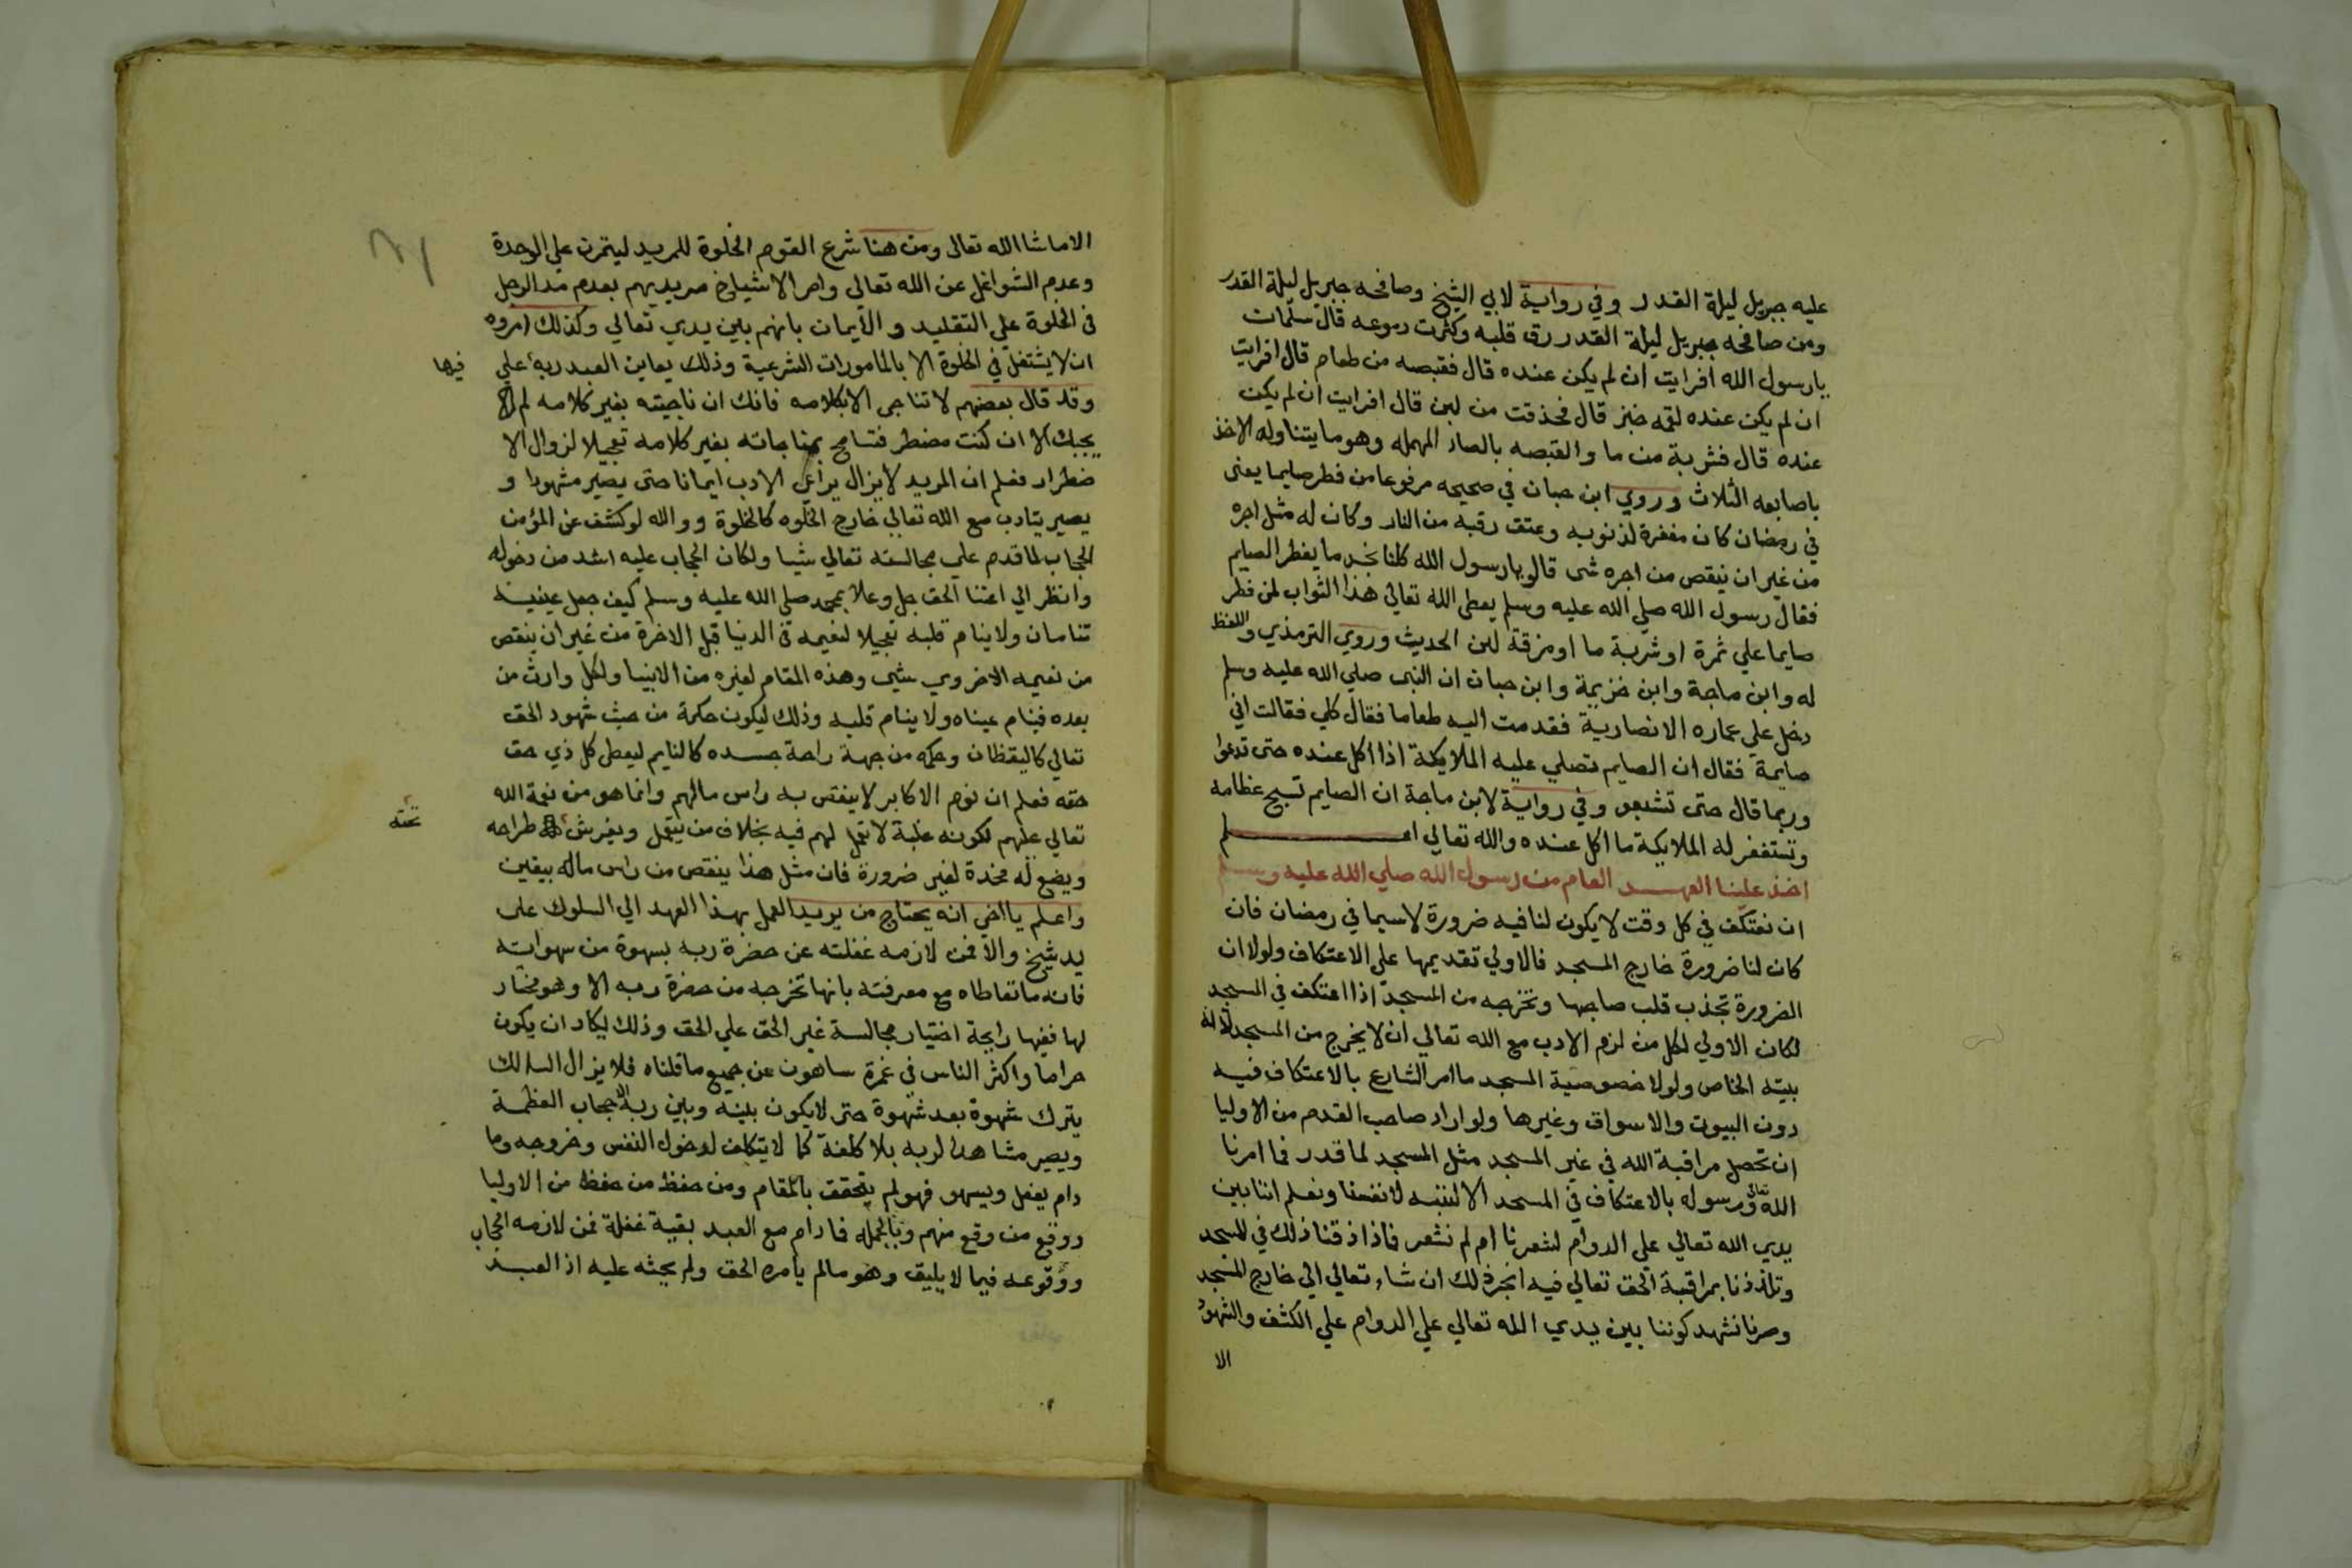 عليه جبريل ليلة القدر وفي رواية لابي الشيخ وصافحه جبريل ليلة القدر
ومن صافحه جبريل ليلة القدر رق قلبه وكثرت دموعه قال سلمان
يارسول الله افرايت ان لم يكن عنده قال فقبصه من طعام قال افرايت
ان لم يكن عنده لقمه خبز قال فمذقت من لبن قال افرايت ان لم يكن
عنده قال فشربة من ما والقبصه بالصاد المهمله وهو ما يتناوله الاخذ
باصابعه الثلاث وروي ابن حبان في صحيحه مرفوعا من فطر صايما يعنى
في رمضان كان مغفرة لذنوبه وعتق رقبه من النار وكان له مثل اجره
من غير ان ينقص من اجره شى قالو يارسول الله كلنا نجد ما يفطر الصايم
فقال رسول الله صلي الله عليه وسلم يعطى الله تعالي هذا الثواب لمن فطر
صايما علي ثمرة او شربة ما او مزقة لبن الحديث وروي الترمذي واللفظ
له وابن ماجة وابن خزيمة وابن حبان ان النبى صلي الله عليه وسلم
دخل علي عماره الانصارية فقدمت اليه طعاما فقال كلي فقالت اني
صايمة فقال ان الصايم تصلي عليه الملايكة اذا اكل عنده حتى تدعوا
وربما قال حتى تشبعو وفي رواية لابن ماجة ان الصايم تسبح عظامه
وتستغفر له الملايكة ما اكل عنده والله تعالي اعلم
اخذ علينا العهد العام من رسول الله صلي الله عليه وسلم
ان نعتكف في كل وقت لا يكون لنا فيه ضرورة لا سيما في رمضان فان
كان لنا ضرورة خارج المسجد فالاولي تقديمها علي الاعتكاف ولولا ان
الضرورة تجذب قلب صاحبها وتخرجه من المسجد اذا اعتكف في المسجد
لكان الاولي لكل من لزم الادب مع الله تعالي ان لا يخرج من المسجد لانه
بيته الخاص ولولا خصوصية المسجد ما امر الشارع بالاعتكاف فيه
دون البيوت والاسواق وغيرها ولو اراد صاحب القدم من الاوليا
ان تحصل مراقبة الله في غير المسجد مثل المسجد لما قدر فما امرنا
الله تعالى ورسوله بالاعتكاف في المسجد الا لننبه لانفسنا ونعلم اننا بين
يدي الله تعالي على الدوام لشعرنا ام لم نشعر فاذا ذقنا ذلك في المسجد
وتلذذنا بمراقبة الحق تعالي فيه انجر ذلك ان شاء تعالي الي خارج المسجد
وصرنا نشهد كوننا بين يدي الله تعالي علي الدوام علي الكشف والشهود
الا
الا ما شا الله تعالى ومن هنا شرع القوم الخلوة للمريد ليتمرن علي الوحدة
وعدم الشواغل عن الله تعالى وامر الاشياخ مريديهم بعدم مد الرجل
فى الخلوة علي التقليد والايمان بانهم بين يدي تعالي وكذلك امروه
ان لا يشتغل في الخلوة الا بالمامورات الشرعية وذلك يعاين العبد ربه علي
فيها
وقد قال بعضهم لا تناجى الا بكلامه فانك ان ناجيته بغير كلامه لم
يجبك الا ان كنت مضطر فتسامح بمناجاته بغير كلامه تعجيلا لزوال الا
ضطرار فعلم ان المريد لا يزال يراعى الادب ايمانا حتى يصير مشهودا و
يصير يتادب مع الله تعالي خارج الخلوه كالخلوة ووالله لو كشف عن المؤمن
الحجاب لما قدم علي مجالسته تعالي شيا ولكان الحجاب عليه اشد من دخوله
وانظر الي اعتنا الحق جل وعلا بمحمد صلي الله عليه وسلم كيف جعل عينيه
تنامان ولا ينام قلبه تعجيلا لنعيمه في الدنيا قبل الاخرة من غير ان ينقص
من نعيمه الاخروي شي وهذه المقام لغيره من الانبيا ولكل وارث من
بعده فينام عيناه ولا ينام قلبه وذلك ليكون حكمه من حيث شهود الحق
تعالي كاليقظان وحكمه من جهة راحة جسده كالنايم ليعطى كل ذي حق
حقه فعلم ان نوم الاكابر لا ينقص به راس مالهم وانما هو من نعمة الله
تعالي عليهم لكونه غلبة لا تعمل لهم فيه بخلاف من يتعمل ويفرش طراحه
تحته
ويضع له مخدة لغير ضرورة فان مثل هذا ينقص من راس ماله بيقين
واعلم يااخى انه يحتاج من يريد العمل بهذا العهد الي السلوك على
يد شيخ والا فمن لازمه غفلته عن حضرة ربه بسهوة من سهواته
فانه ما تعاطاه مع معرفته بانها تخرجه من حضرة ربه الا وهو مختار
لها ففيها رايحة اختيار مجالسة غير الحق علي الحق وذلك يكاد ان يكون
حراما واكثر الناس في غمرة ساهون عن جميع ما قلناه فلا يزال السالك
يترك شهوة بعد شهوة حتى لا يكون بينه وبين ربه الا حجاب العظمة
ويصير مشاهدا لربه بلا كلفة كما لا يتكلف لدخول النفس وخروجه وما
دام يغفل ويسهو فهو لم يتحقق بالمقام ومن حفظ من حفظ من الاوليا
ووقع من وقع منهم وبالجمله فما دام مع العبد بقية غفلة فمن لازمه الحجاب
ووقوعه فيما لا يليق وهو مالم يامره الحق ولم يحثه عليه اذ العبد